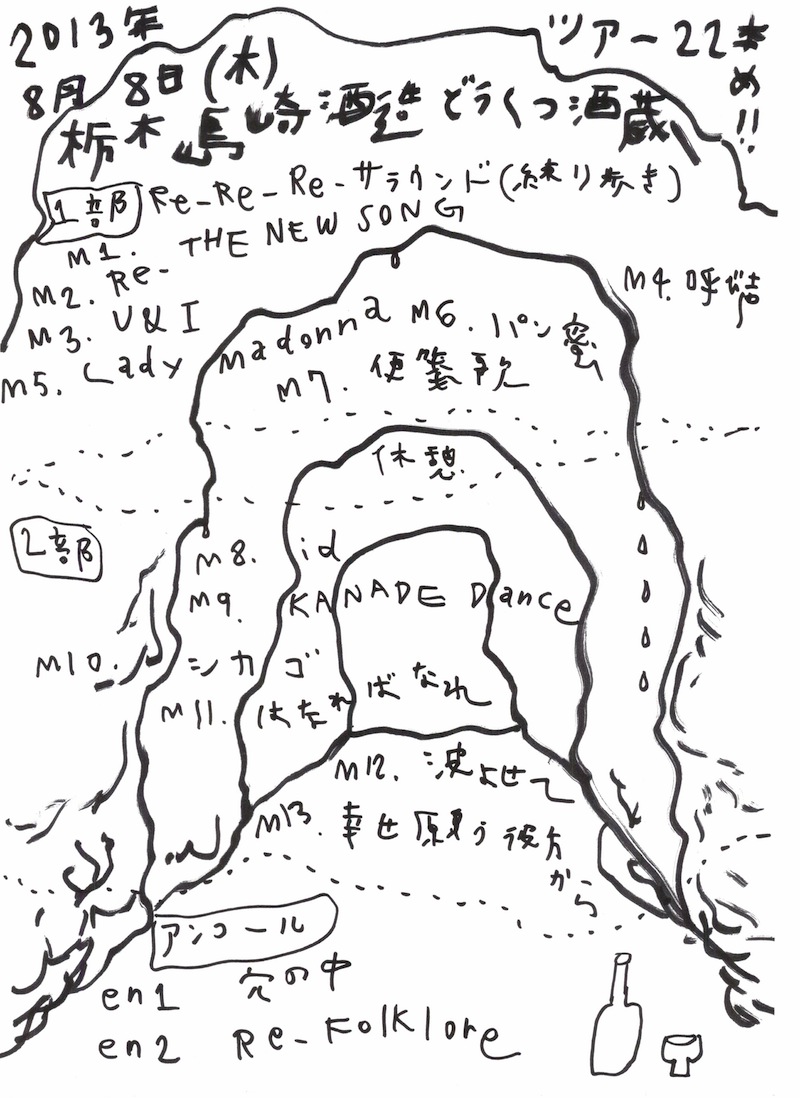 2013年
8月8日(木)
ツアー22本め!!
栃木島崎酒造どうくつ酒蔵
1部 Re-Re-Re-サラウンド(練り歩き)
m1. THE NEW SONG
m2. Re-
m3. U&I
m4. 呼び声
m5. Lady madonna
m6. パン蜜
m7. 便箋歌
休憩
2部
m8. id
m9. KANADE Dance
m10. シカゴ
m11. はなればなれ
m12. 波よせて
m13. 幸せ願う彼方から
アンコール
en1 穴の中
en2 Re-Folklore